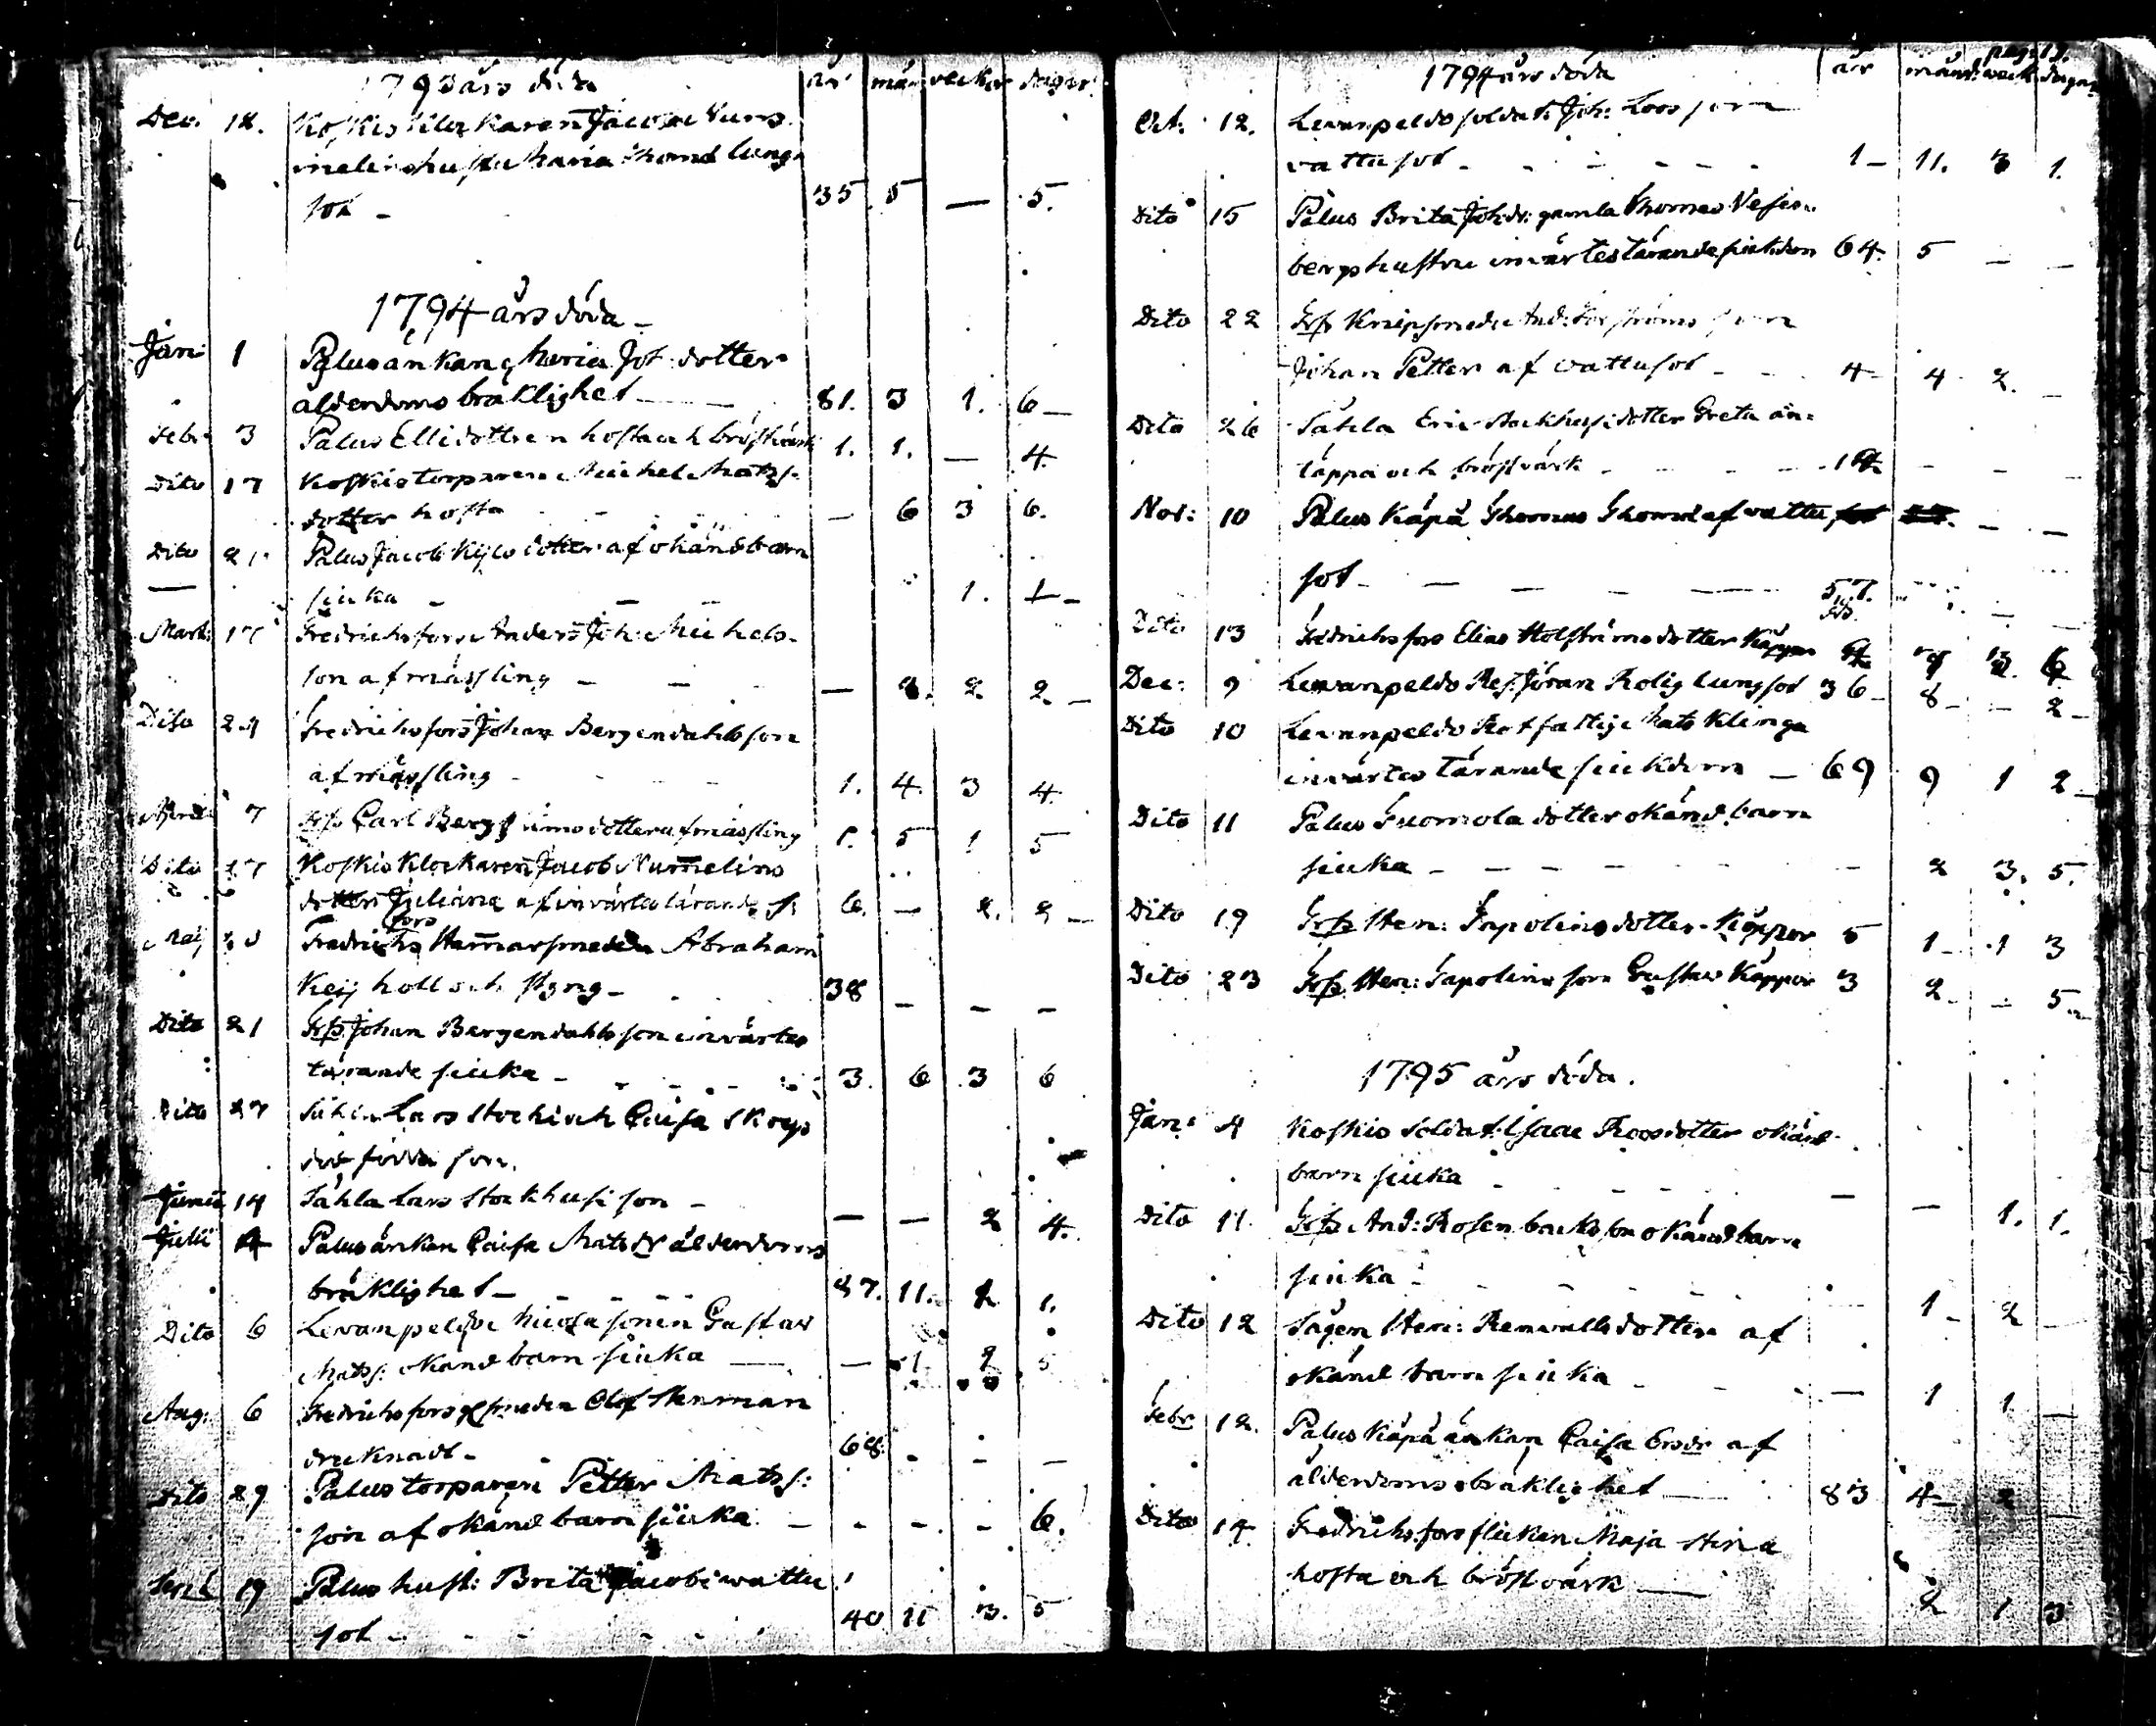 1793 års döda år mån veckor dagar
Dec. 18. Koskis klockaren Jacob Num
melins hustru Maria Thomd lung
sot - 35 5 — 5.
1794 års döda
Jan: 1 Palus änkan Maria Joh: dotter
ålderdoms bräklighet 81. 3 1. 6
Febr: 3 Palus Elli dotter hosta och bröstvärk 1. 1. — 4.
Dito 17 Koskis torparen Michel Matss.
dotter hosta — 6 3 6.
Dito 21 Palus Jacob dotter af okänd barn
siuka 1.
Mart: 17 Fredrichsfors Anders Joh: Michels
son af mässling — 2 2
Dito 24 Fredrichsfors Johan Bergendahls son
af mässling 1. 4. 3 4.
7 Frfs Carl Bergströms dotter af mässling 1. 5 1 5
Dito 17 Koskis Klockaren Jacob Numelins
dotter Juliana af invärtes tärande s. 6. — 2. 2
fors
Maij Fredrichs Hamarsmeden Abraham
Keij håll och styng 38 — — —
Dito 21 Frfs Johan Bergendahls son invärtes
tärande siuka 3. 6 3 6
Dito 27 Lars Stock och Caisa
död födda son.
Junii 14 Såhla Lars Stockhus son — — 2 4.
Julii 4 Palus änkan Caisa Mats dr ålderdoms
bräklighet 87. 11. 2 1.
Dito 6 Levanpeldo sonen Gustav
Mats: okänd barn siuka — 1. 2 5
Aug: 6 Fredrichsfors smeden Olof Stenman
druknade 68 - - -
Dito 29 Palus torparen Petter Matss:
son af okänd barn siuka - - - 6.
Sept 19 Palus hust: Brita Jacobs: wattu
sot 40 11 3. 5
pag: 17.
1794 års döda år månd: veck: dagar
Oct: 12. Levanpeldo soldat Joh: Loos son
vattusot 1 11. 3 1.
Dito 15 Palus Brita Joh:dr: gamla Thomas
bergs hustru invärtes tärande siukdom 64. 5 — —
Dito 22 Frfs Knipsmeden And: Forströms son
Johan Petter af vattusot 4 4 2. -
Dito 26 Såhla Eric Stockhus dotter Greta an=
täppa och bröstvärk 14 - - -
Nov: 10 Palus Käpä Thomas Thomd af vattu — —
sot 57.
Dito 13 Fredrichsfors Elias Holströms dotter Koppor 3. 6
Dec: 9 Levanpeldo Res. Jöran Rolig lungsot 36 8 — 2
Dito 10 Levanpeldo Rotfattige Mats Klinga
invärtes tärande siukdom 69 9 1 2
Dito 11 Palus Suomola dotter okänd barn
siuka — 2 3. 5.
Dito 19 Frfs Hen: Sapolins dotter Koppor 5 1 1 3
Dito 23 Frfs Hen: Sapolins son Gustav Koppor 3 2 - 5
1795 års döda.
Jan: 4 Koskis soldat Isaac Roos dotter okänd
barn siuka — — 1. 1.
Dito 11. Frfs And: Rosenbacks son okänd barn
siuka 1 2
Dito 12 Sågen Hen: Renvalls dotter af
okänd barn siuka — 1 1 —
Febr 12. Palus Käpä änkan Caisa af
ålderdoms bräklighet 83 4 2
Dito 14 Fredrichsfors flickan Maja Stina
hosta och bröstvärk 2 1 3